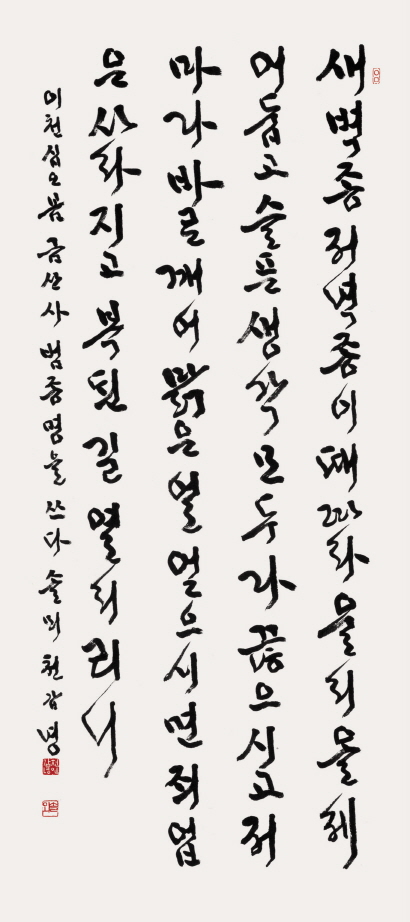 새벽종 저녁종이 때 따라 울리울 제
어둡고 슬픈 생각 모두 다 끊으시고 저
마다 바로 깨어 맑은 얼 얻으시면 죄업
은 사라지고 복된 길 열리리니
이천십오 봄 금산사 범종명을 쓰다 솔뫼 천갑녕